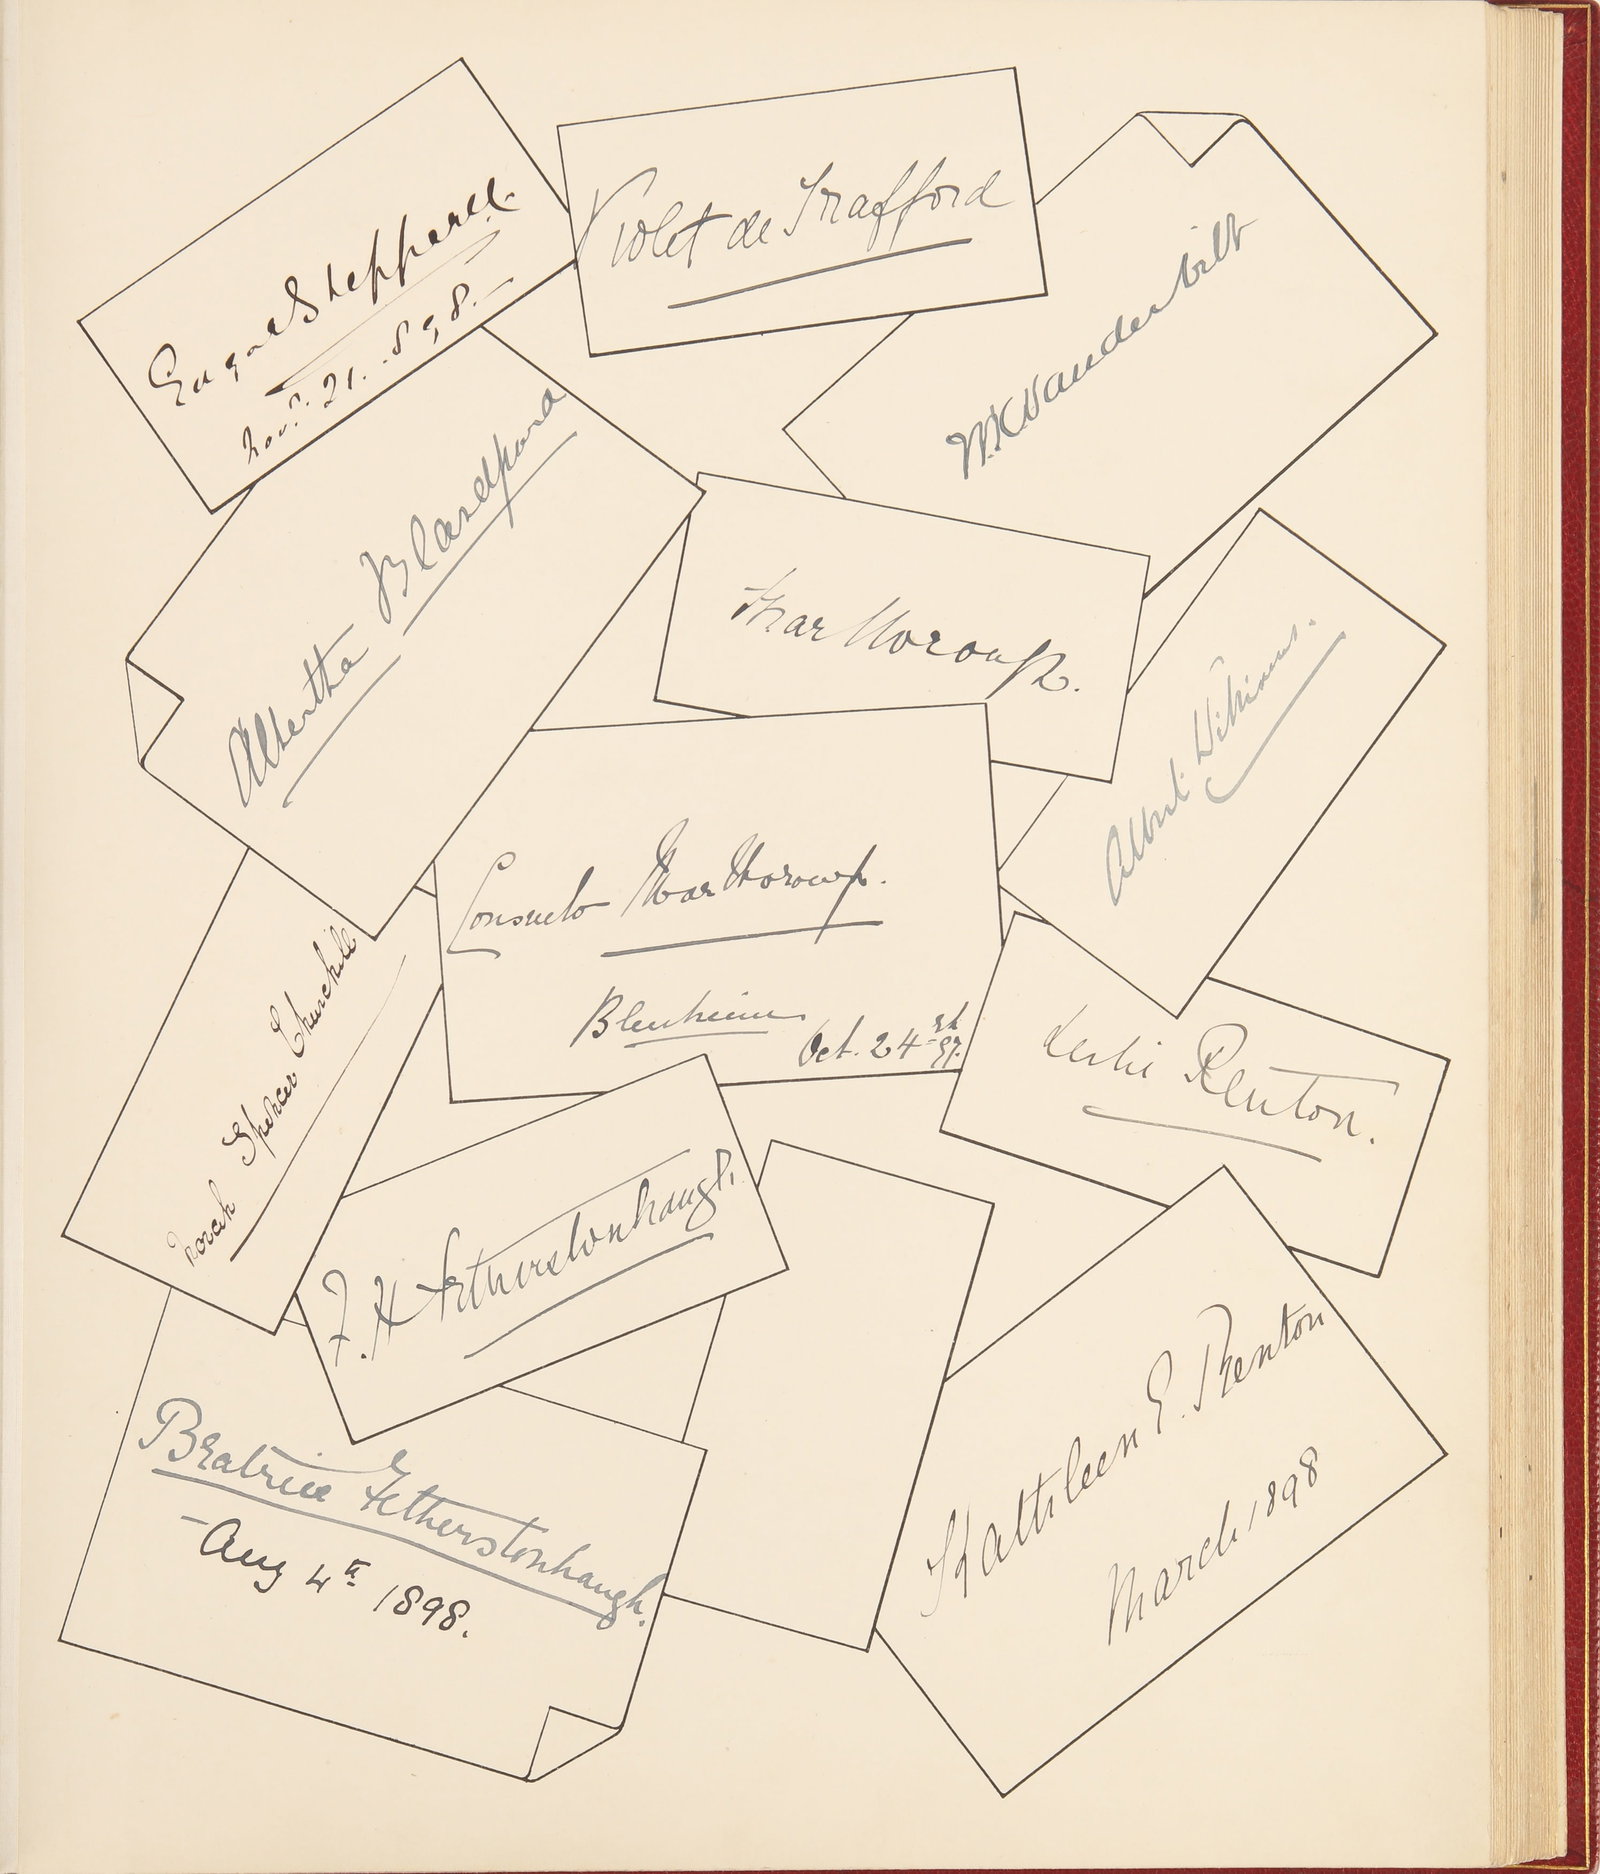 Edgar Sheppard.
Nov. 21. 1898.
Violet de Trafford
W.K. Vanderbilt
Albertha Blandford
Marlborough.
Albert
Consuelo Marlborough.
Blenheim
Oct. 24 97.
Norah Spencer Churchill
Leslie Renton.
F. H Fetherstonhaugh.
Kathleen E. Renton
March 1898
Beatrice Fetherstonhaugh.
- Aug 4th 1898.